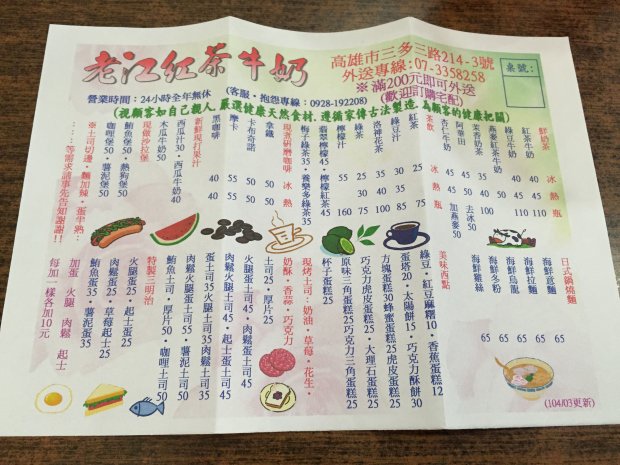 老江紅茶牛奶
高雄市三多三路214-3號
外送專線:07-3358258
※滿200元即可外送
(歡迎訂購宅配)
桌號:
營業時間:24小時全年無休 (客服・抱怨專線:0928-192208)
(視顧客如自己親人 嚴選健康天然食材.遵循家傳古法製造.為顧客的健康把關)
鮮奶茶 冰 熱 瓶
紅茶牛奶
綠豆牛奶
燕麥紅茶牛奶
茉香奶茶
阿華田
杏仁牛奶
茶飲 冰 熱 瓶
紅茶
綠豆汁
洛神花茶
綠茶
檸檬汁
檸檬紅茶 45
翡翠檸檬 45
梅子綠茶35・養樂多綠茶35
現煮研磨咖啡 冰 熱
拿鐵 50 55
卡布奇諾 50 55
摩卡 50 55
黑咖啡 40 40
新鮮現打果汁
西瓜汁30・西瓜牛奶40
木瓜牛奶50
現做沙拉堡
鮪魚堡50・熱狗堡50
咖哩堡50・薯泥堡50
※土司切邊・麵加辣・蛋半熟…
…等需求請事先告知謝謝!!
日式鍋燒麵
海鮮意麵 65
海鮮拉麵 65
海鮮烏龍 65
海鮮冬粉 65
海鮮雞絲 65
美味西點
綠豆・紅豆麻糬10・香蕉蛋糕12
蛋塔20・太陽餅15・巧克力酥餅30
方塊蛋糕30蜂蜜蛋糕25虎皮蛋糕25
巧克力虎皮蛋糕25・大理石蛋糕25
原味三角蛋糕25巧克力三角蛋糕25
杯子蛋糕25
現烤土司:奶油・草莓・花生・
奶酥・香蒜・巧克力
土司25・厚片25
肉鬆火腿蛋土司50・起士蛋土司45
蛋土司35火腿土司35肉鬆土司35
鮪魚土司50・厚片50・咖哩土司50
特製三明治
火腿蛋25・起士蛋25
肉鬆蛋25・草莓起士25
鮪魚蛋35・薯泥蛋35
加蛋 火腿 肉鬆 起士
每加一樣各加10元
(104/03更新)